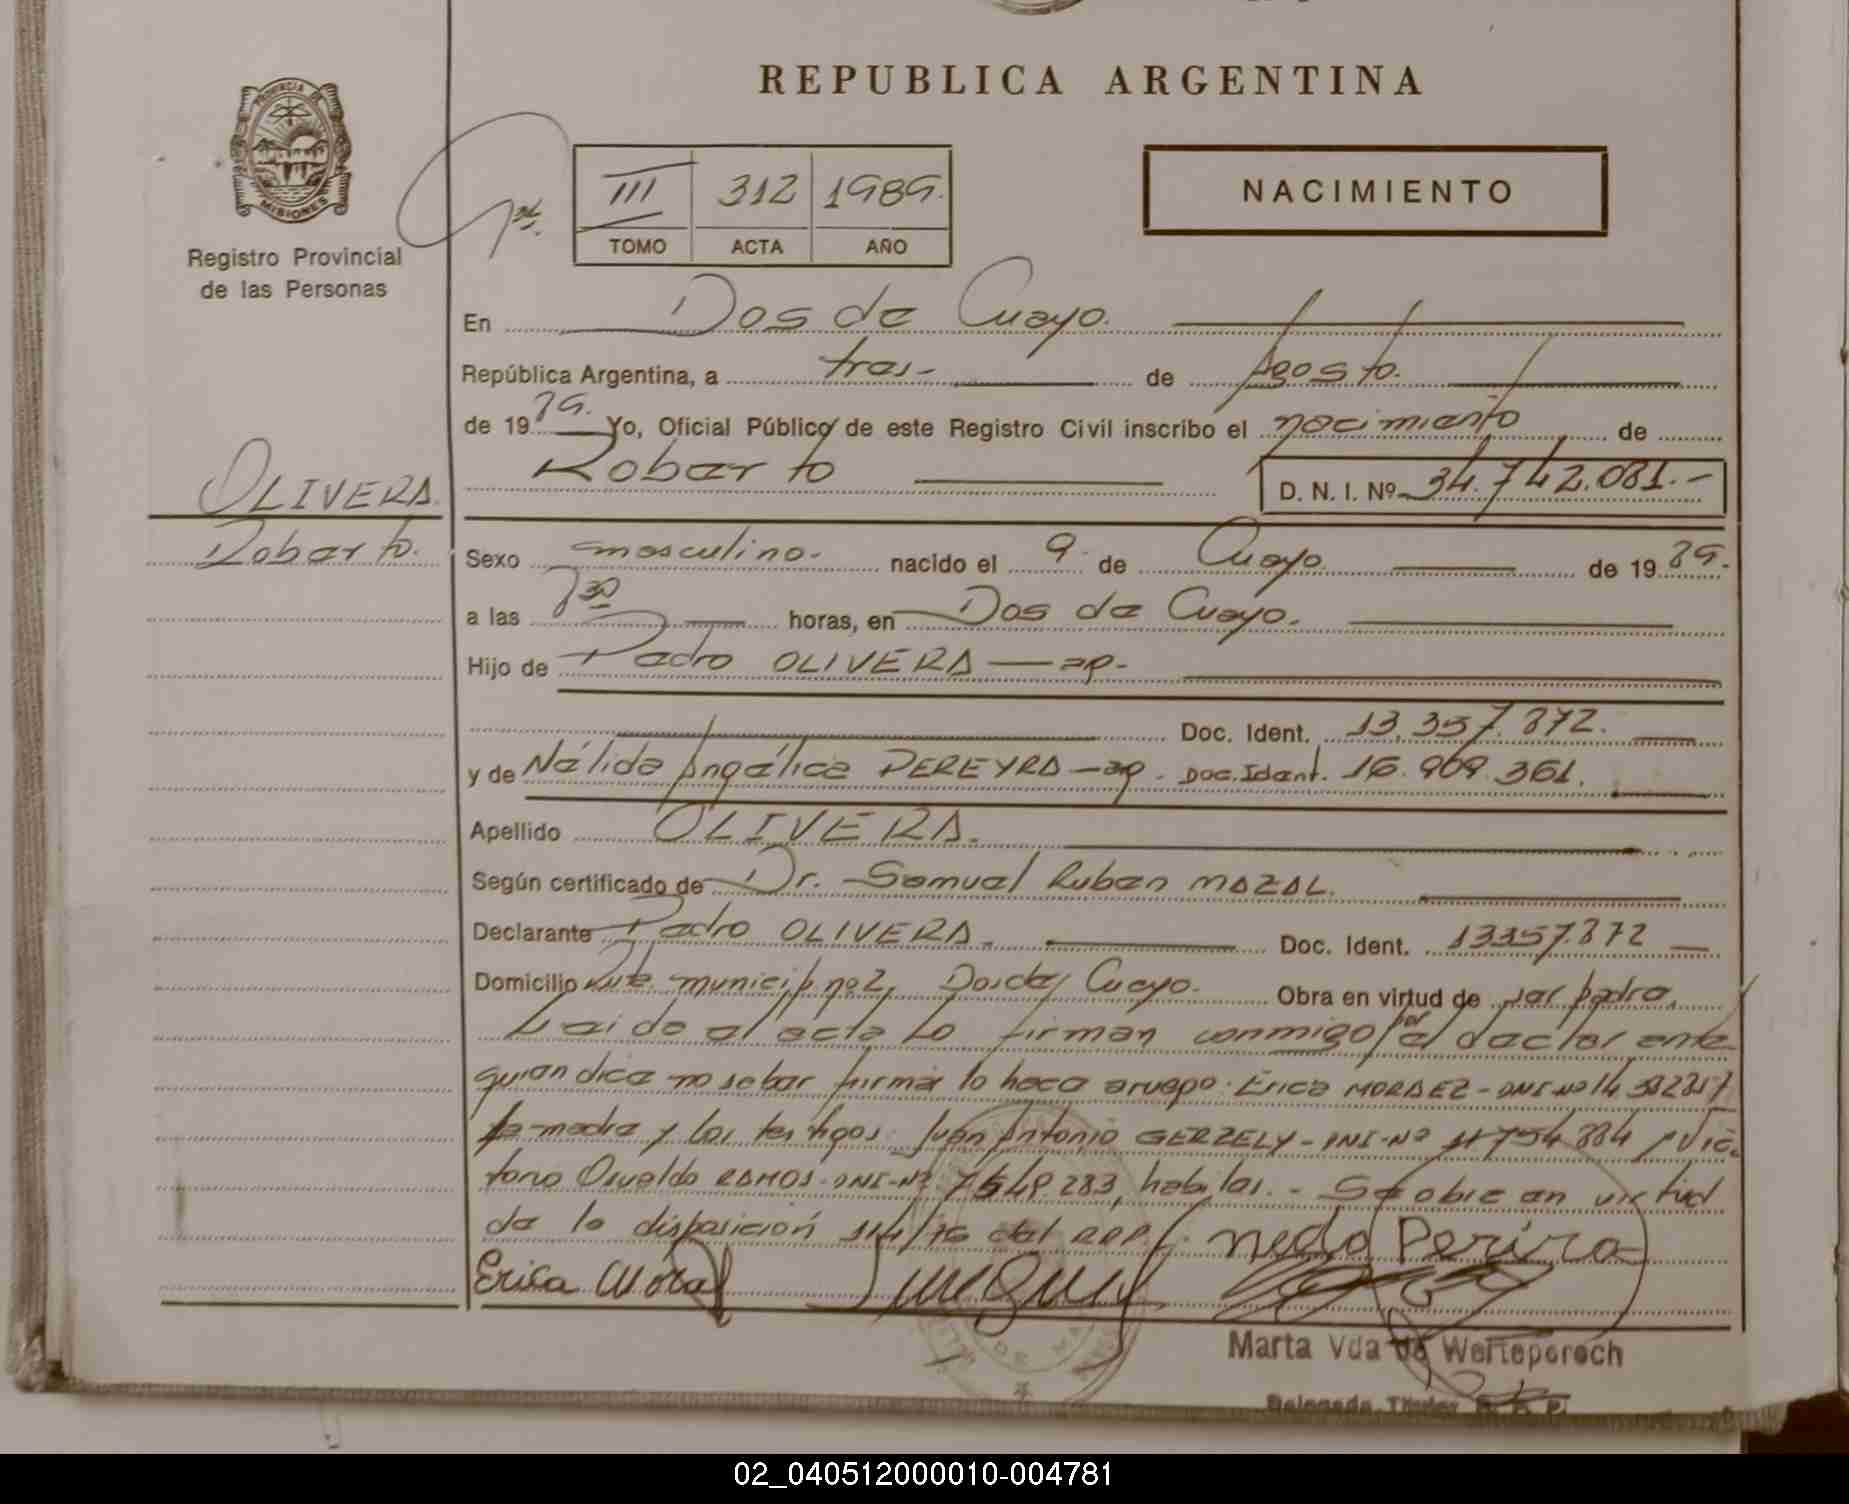 REPUBLICA ARGENTINA
PROVINCIA DE
MISIONES
Registro Provincial
de las Personas
III 312 1989.
TOMO ACTA AÑO
NACIMIENTO
En Dos de Mayo.
República Argentina, a tres- de Agosto.
de 19 89. Yo, Oficial Público de este Registro Civil inscribo el nacimiento de
Roberto D. N. I. Nº 34.742.081.-
OLIVERA
Roberto.
Sexo masculino. nacido el 9 de Mayo de 19 89.
a las 7 30 horas, en Dos de Mayo.
Hijo de Pedro OLIVERA — ap-
Doc. Ident. 13.357.872.
y de Nélida Angélica PEREYRA - ap. Doc. Ident. 16.909.361.
Apellido OLIVERA.
Según certificado de Dr. Samuel Ruben MAZAL.
Declarante Pedro OLIVERA. Doc. Ident. 13357.872
Domicilio Rute. municip. nº2, Dos de Mayo. Obra en virtud de ser padre.
Leida el acta lo firman conmigo por el declarante
quien dice no saber firmar lo hace a ruego: Erica MORAEZ - DNI-Nº 14.382857
la madre y los testigos: Juan Antonio GERZELY - DNI-Nº 11754884 / Vic-
torio Osvaldo RAMOS - DNI-Nº 7.548.283, habiles. - Se obre en virtud
de la disposición 114/76 del RPP.
neda Pereira
Erica Moraez
Marta Vda de Werteperech
Delegada Titular R. P. P.
02_040512000010-004781